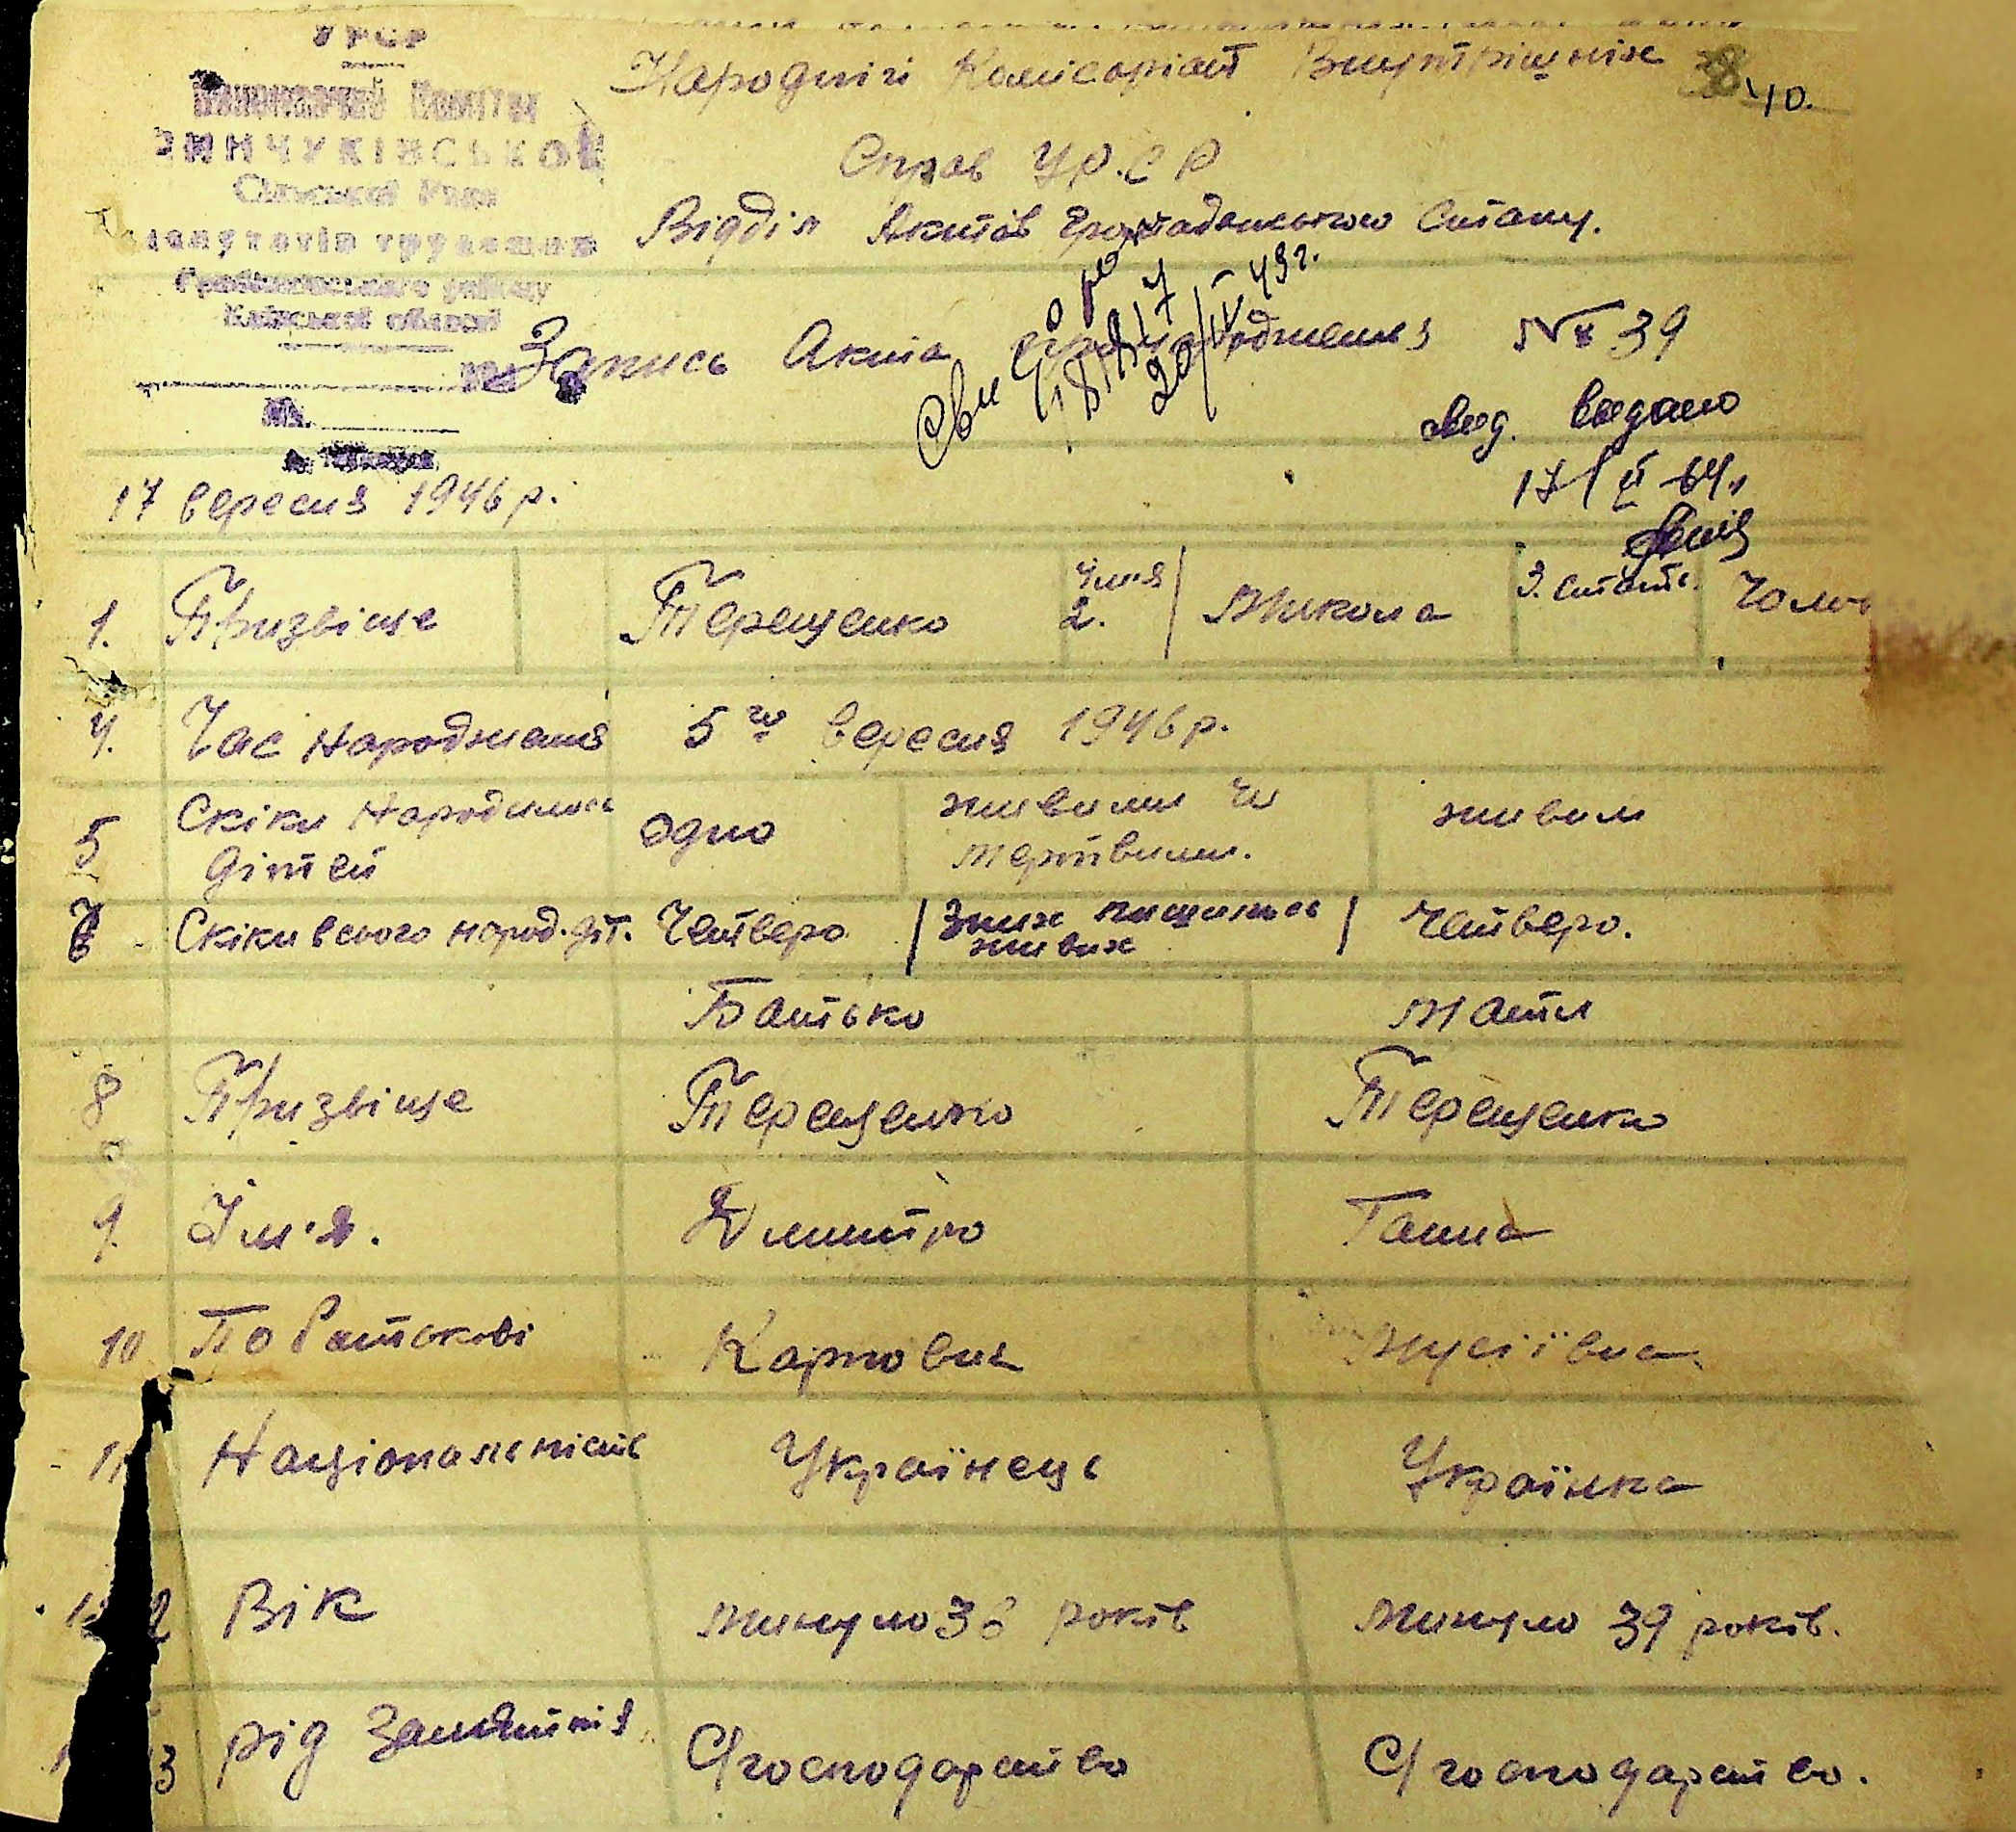 УРСР
Виконавчий Комітет
ЗИНЧУКІВСЬКОЇ
Сільської Ради
депутатів трудящих
Гребінківського району
Київської області
Народній Комісаріат Внутрішніх
40.
Справ УР.СР
Відділ Актів Громадянського Стану.
Запись Акта про народження № 39
20/IV-49г.
свид. выдано
17/VI-64г
17 вересня 1946 р.
1. Призвіще Терещенко Имя 2. Микола 3. Стать. Чолов
4. Час Народження 5го вересня 1946 р.
5 Скіки Народилось дітей одно живими чи мертвими. живим
Скіки всього народ. діт. Четверо Зних лишилось живих Четверо.
Батько Мати
8 Призвіще Терещенко Терещенко
9. Ім'я. Дмитро Ганна
10 По Батькові Карпович Мусіївна
11 Національність Українець Українка
12 Вік минуло 36 років минуло 39 років.
13 рід Заняття С/господарство С/господарство.